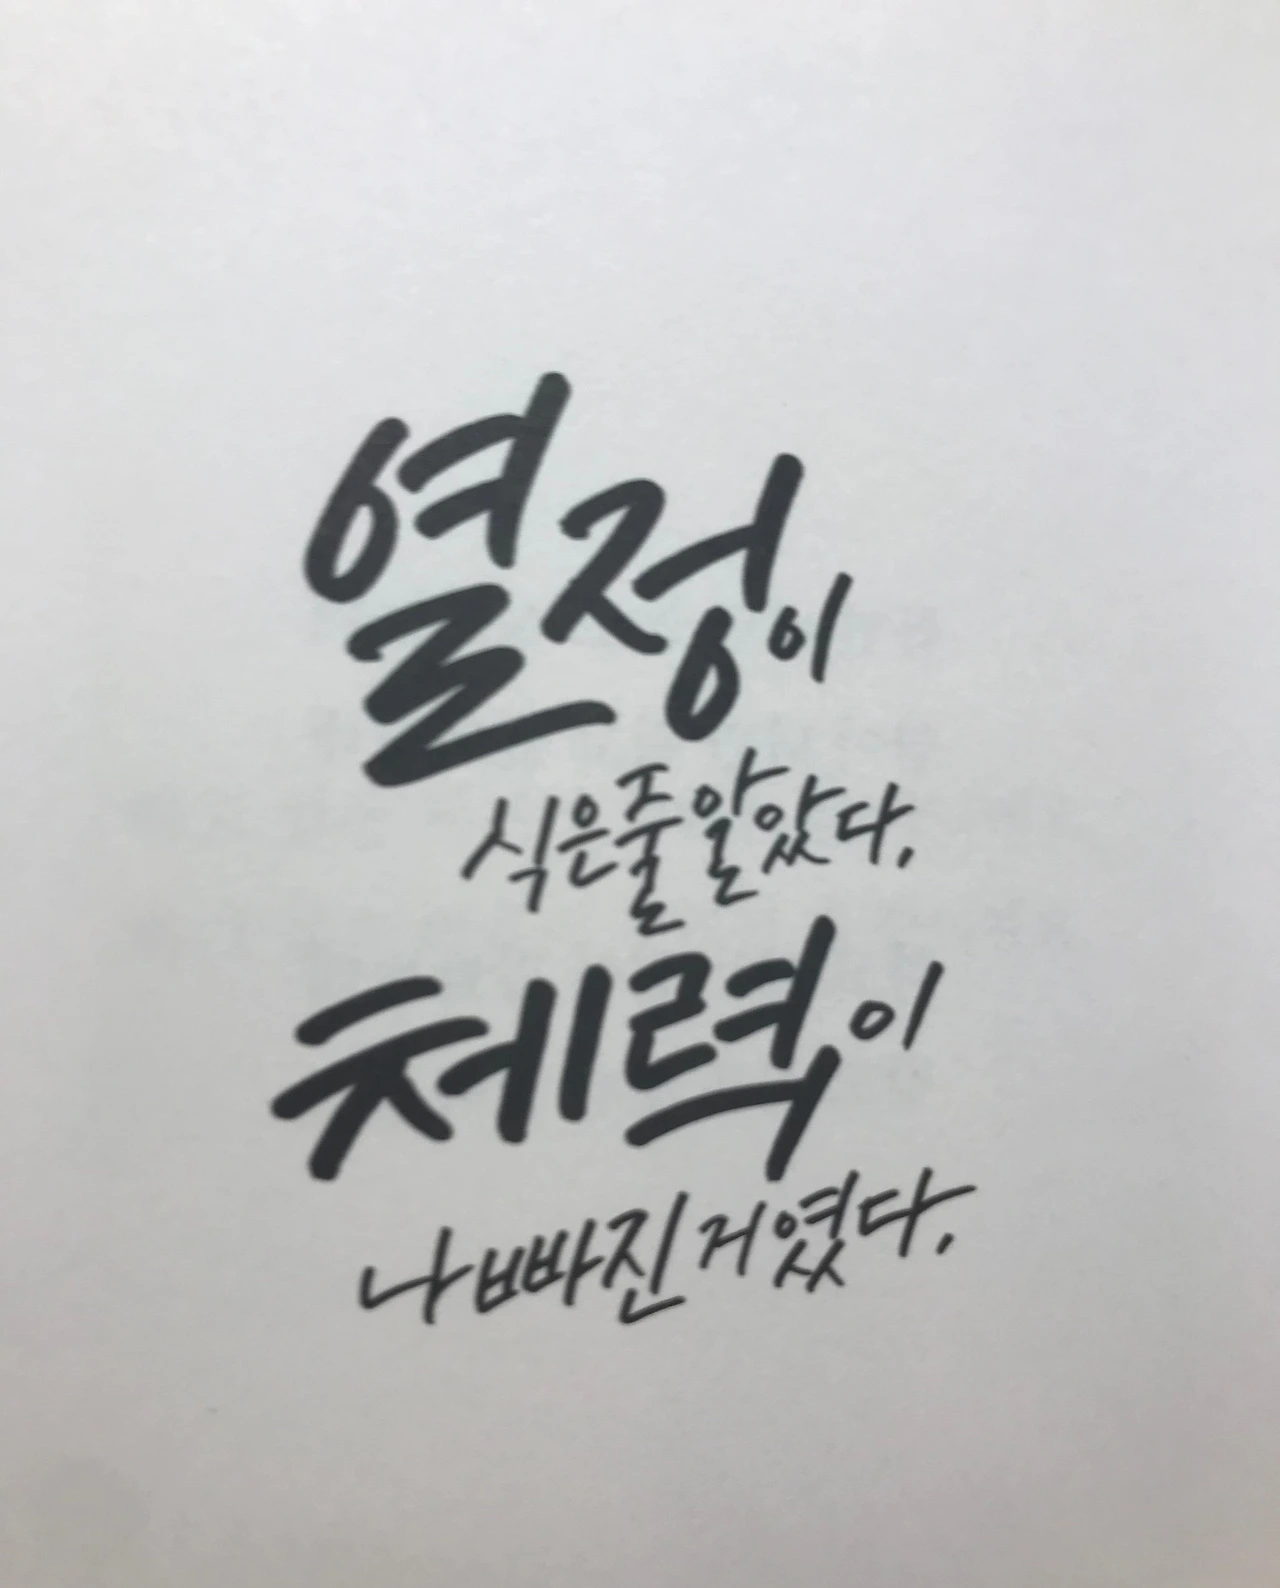 열정이
식은줄알았다,
체력이
나빠진거였다,